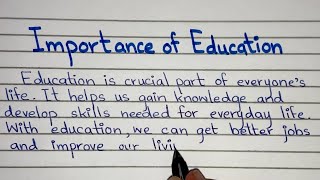 Importance of Education
Education is crucial part of everyone's
life. It helps us gain knowledge and
develop skills needed for everyday life.
With education, we can get better jobs
and improve our livi